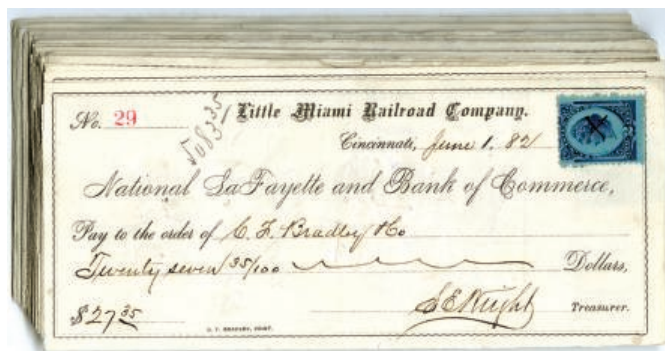 No. 29
Little Miami Railroad Company.
Cincinnati, June 1. 82
National LaFayette and Bank of Commerce,
Pay to the order of C. F. Bradley & Co
Twenty seven 35/100 Dollars,
$ 27 35 Treasurer.